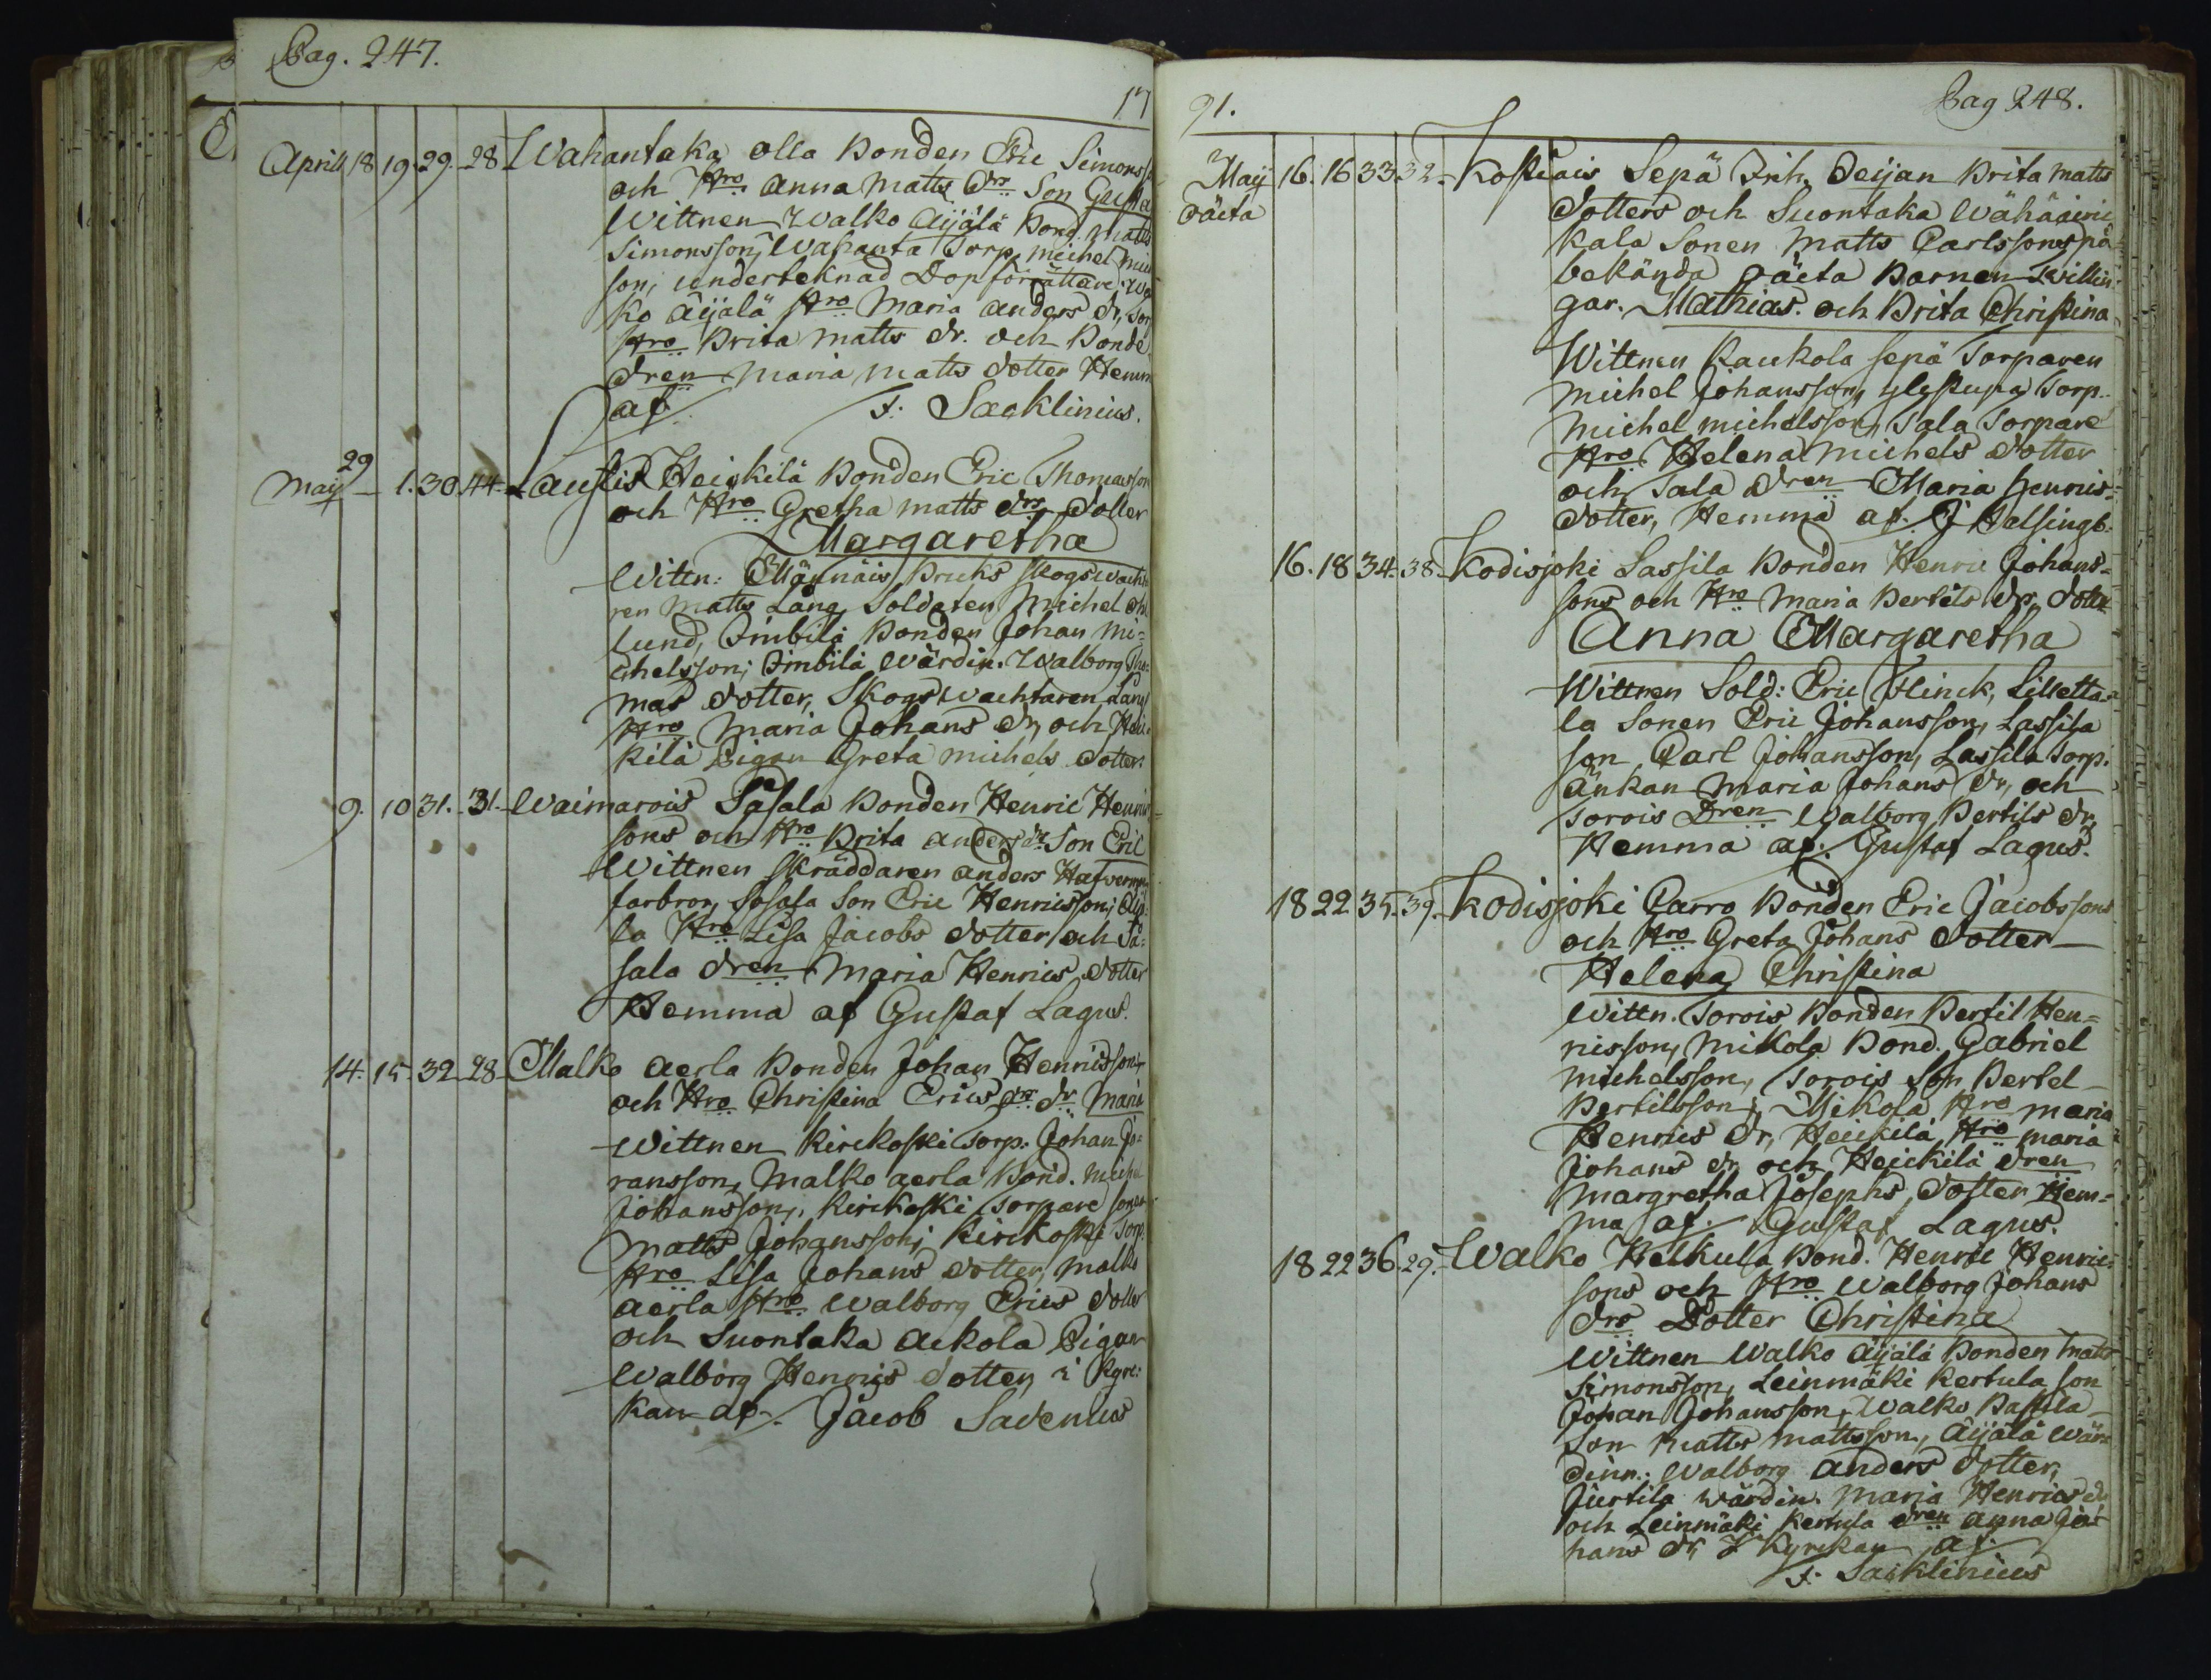 Pag. 247.
17
Aprill 18 19. 29. 28 Wahantaka olla Bonden Eric Simonss
och Hro Anna Matts drs Son Gusta
Wittnen Walko Äijälä Bond. Matts
Simonsson, Wahanta Torp. Michel Mich
son, underteknad Dopförrättare. Wal
ko Äijälä Hro Maria Anders dr, Tor
Hro Brita Matts dr. och Bonde
dren Maria Matts dotter Hemm
af. F. Sacklinius.
May 29 1. 30. 44. Laustis Heickilä Bonden Eric Thomasson
och Hro Gretha Matts drs dotter
Margaretha
Wittn: Männäis Bruks Skogswackta
ren Matts Lång, Soldaten Michel
lund, Simbilä Bonden Johan Mi=
chelsson; Simbilä wärdin. Walborg Tho=
mas dotter, Skogswachtaren Lång
Hro Maria Johans dr, och Hei=
kilä Pigan Greta Michels dotter.
9. 10 31. 31. Waimarois Såsala Bonden Henric Henric
sons och Hro Brita Anders dr Son Eric
Wittnen Skräddaren Anders
farbror, Såsala Son Eric Henricsson;
la Hro Lisa Jacobs dotter och Så=
sala dren Maria Henrics dotter
Hemma af Gustaf Lagus.
14. 15. 32. 28 Malko Aerla Bonden Johan Henricsson
och Hro Christina Erics drs dr Maria
Wittnen Kirckoski Torp. Johan Jo=
ransson, Malko Aerla Bond. Miche
Johansson, Kirckoski Torpare Sonen
Matts Johansson; Kirckoski Torp.
Hro Lisa Johans dotter, Malko
Aerla Hro Walborg Erics dotter
och Suontaka Ackola Pigan
Walborg Henrics dotter, i Kyrc=
kan af. Jacob Sadenius
91.
Pag 248.
May 16. 16 33 32. Kostiais Sepä Inh. Deijan Brita Matts
oäcta
dotters och Suontaka Wähä
kala Sonen Matts Carlssons på
bekända oäcta Barnen Twillin=
gar. Mathias. och Brita Christina
Wittnen Kaukola Sepä Torparen
Michel Johansson, Ylystupa Torp.
Michel Michelsson, Tala Torpare
Hro Helena Michels dotter
och Tala dren Maria Henrics=
dotter, Hemma af. J Halsingb.
16. 18 34. 38. Kodisjoki Lassila Bonden Henric Johans=
sons och Hro Maria Bertils dr, dotter
Anna Margaretha
Wittnen Sold: Eric Flinck, Lilletta=
la Sonen Eric Johansson, Lassila
son Carl Johansson, Lassila Torp.
änkan Maria Johans dr, och
Torois Dren Walborg Bertils dr,
Hemma af. Gustaf Lagus.
18 22 35. 39. Kodisjoki Carro Bonden Eric Jacobssons
och Hro Greta Johans dotter
Helena Christina
Wittn. Torois Bonden Bertil Hen=
ricsson, Mikola Bond. Gabriel
Michelsson, Torois Son Bertel
Bertilsson; Mikola Hro Maria
Henrics dr, Heickilä Hro Maria
Johans dr och Heickilä dren
Margretha Josephs dotter Hem=
ma af. Gustaf Lagus.
18 22 36. 29. Walko Helkula Bond. Henric Henric=
sons och Hro Walborg Johans
drs Dotter Christina
Wittnen Walko Äijälä Bonden Matts
Simonsson, Leinmäki Kertula son
Johan Johansson, Walko Passila
Son Matts Mattsson, Äijälä Wär=
dinn: Walborg Anders dotter,
Jurtila wärdin. Maria Henrics dr
och Leinmäki Kertula dren Anna Jo=
hans dr, I Kyrckan af.
F. Sacklinius